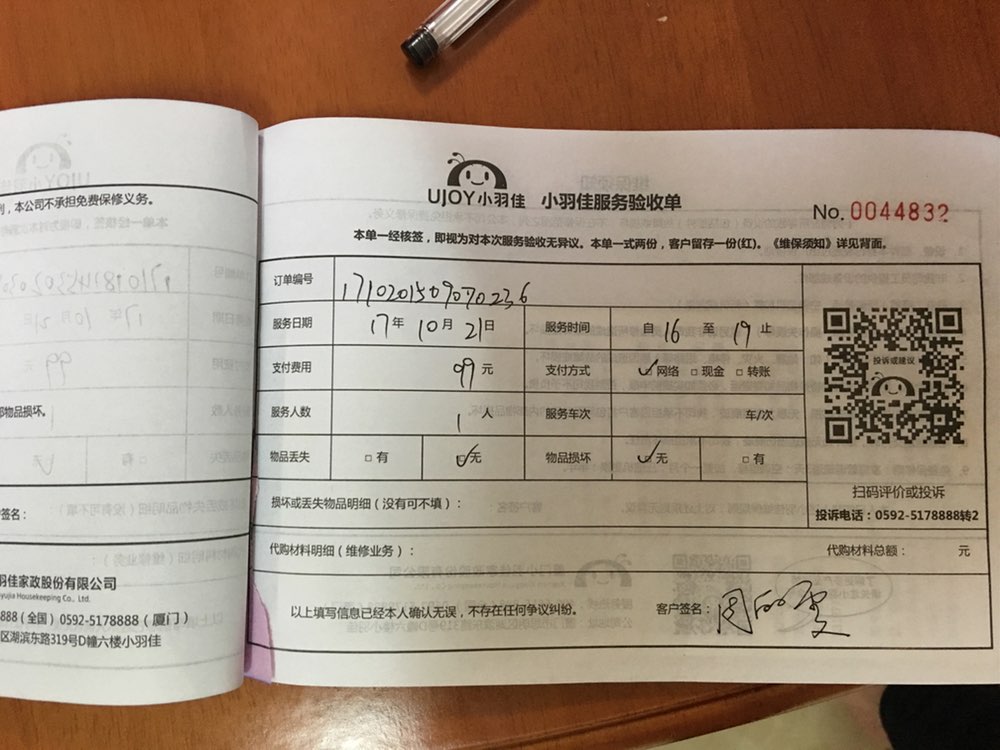 列，本公司不承担免费保修义务。
部物品损坏。
签名：
羽佳家政股份有限公司
yujia Housekeeping Co., Ltd.
888（全国）0592-5178888（厦门）
区湖滨东路319号D幢六楼小羽佳
UJOY小羽佳 小羽佳服务验收单
No. 0044832
本单一经核签，即视为对本次服务验收无异议。本单一式两份，客户留存一份(红)。《维保须知》详见背面。
订单编号 1710201509070236
服务日期 17年10月21日 服务时间 自16至19止
支付费用 99元 支付方式 ✓网络 □现金 □转账
服务人数 1人 服务车次 车/次
物品丢失 □有 ✓无 物品损坏 ✓无 □有
投诉或建议
扫码评价或投诉
投诉电话：0592-5178888转2
损坏或丢失物品明细（没有可不填）：
代购材料明细（维修业务）： 代购材料总额： 元
以上填写信息已经本人确认无误，不存在任何争议纠纷。 客户签名：